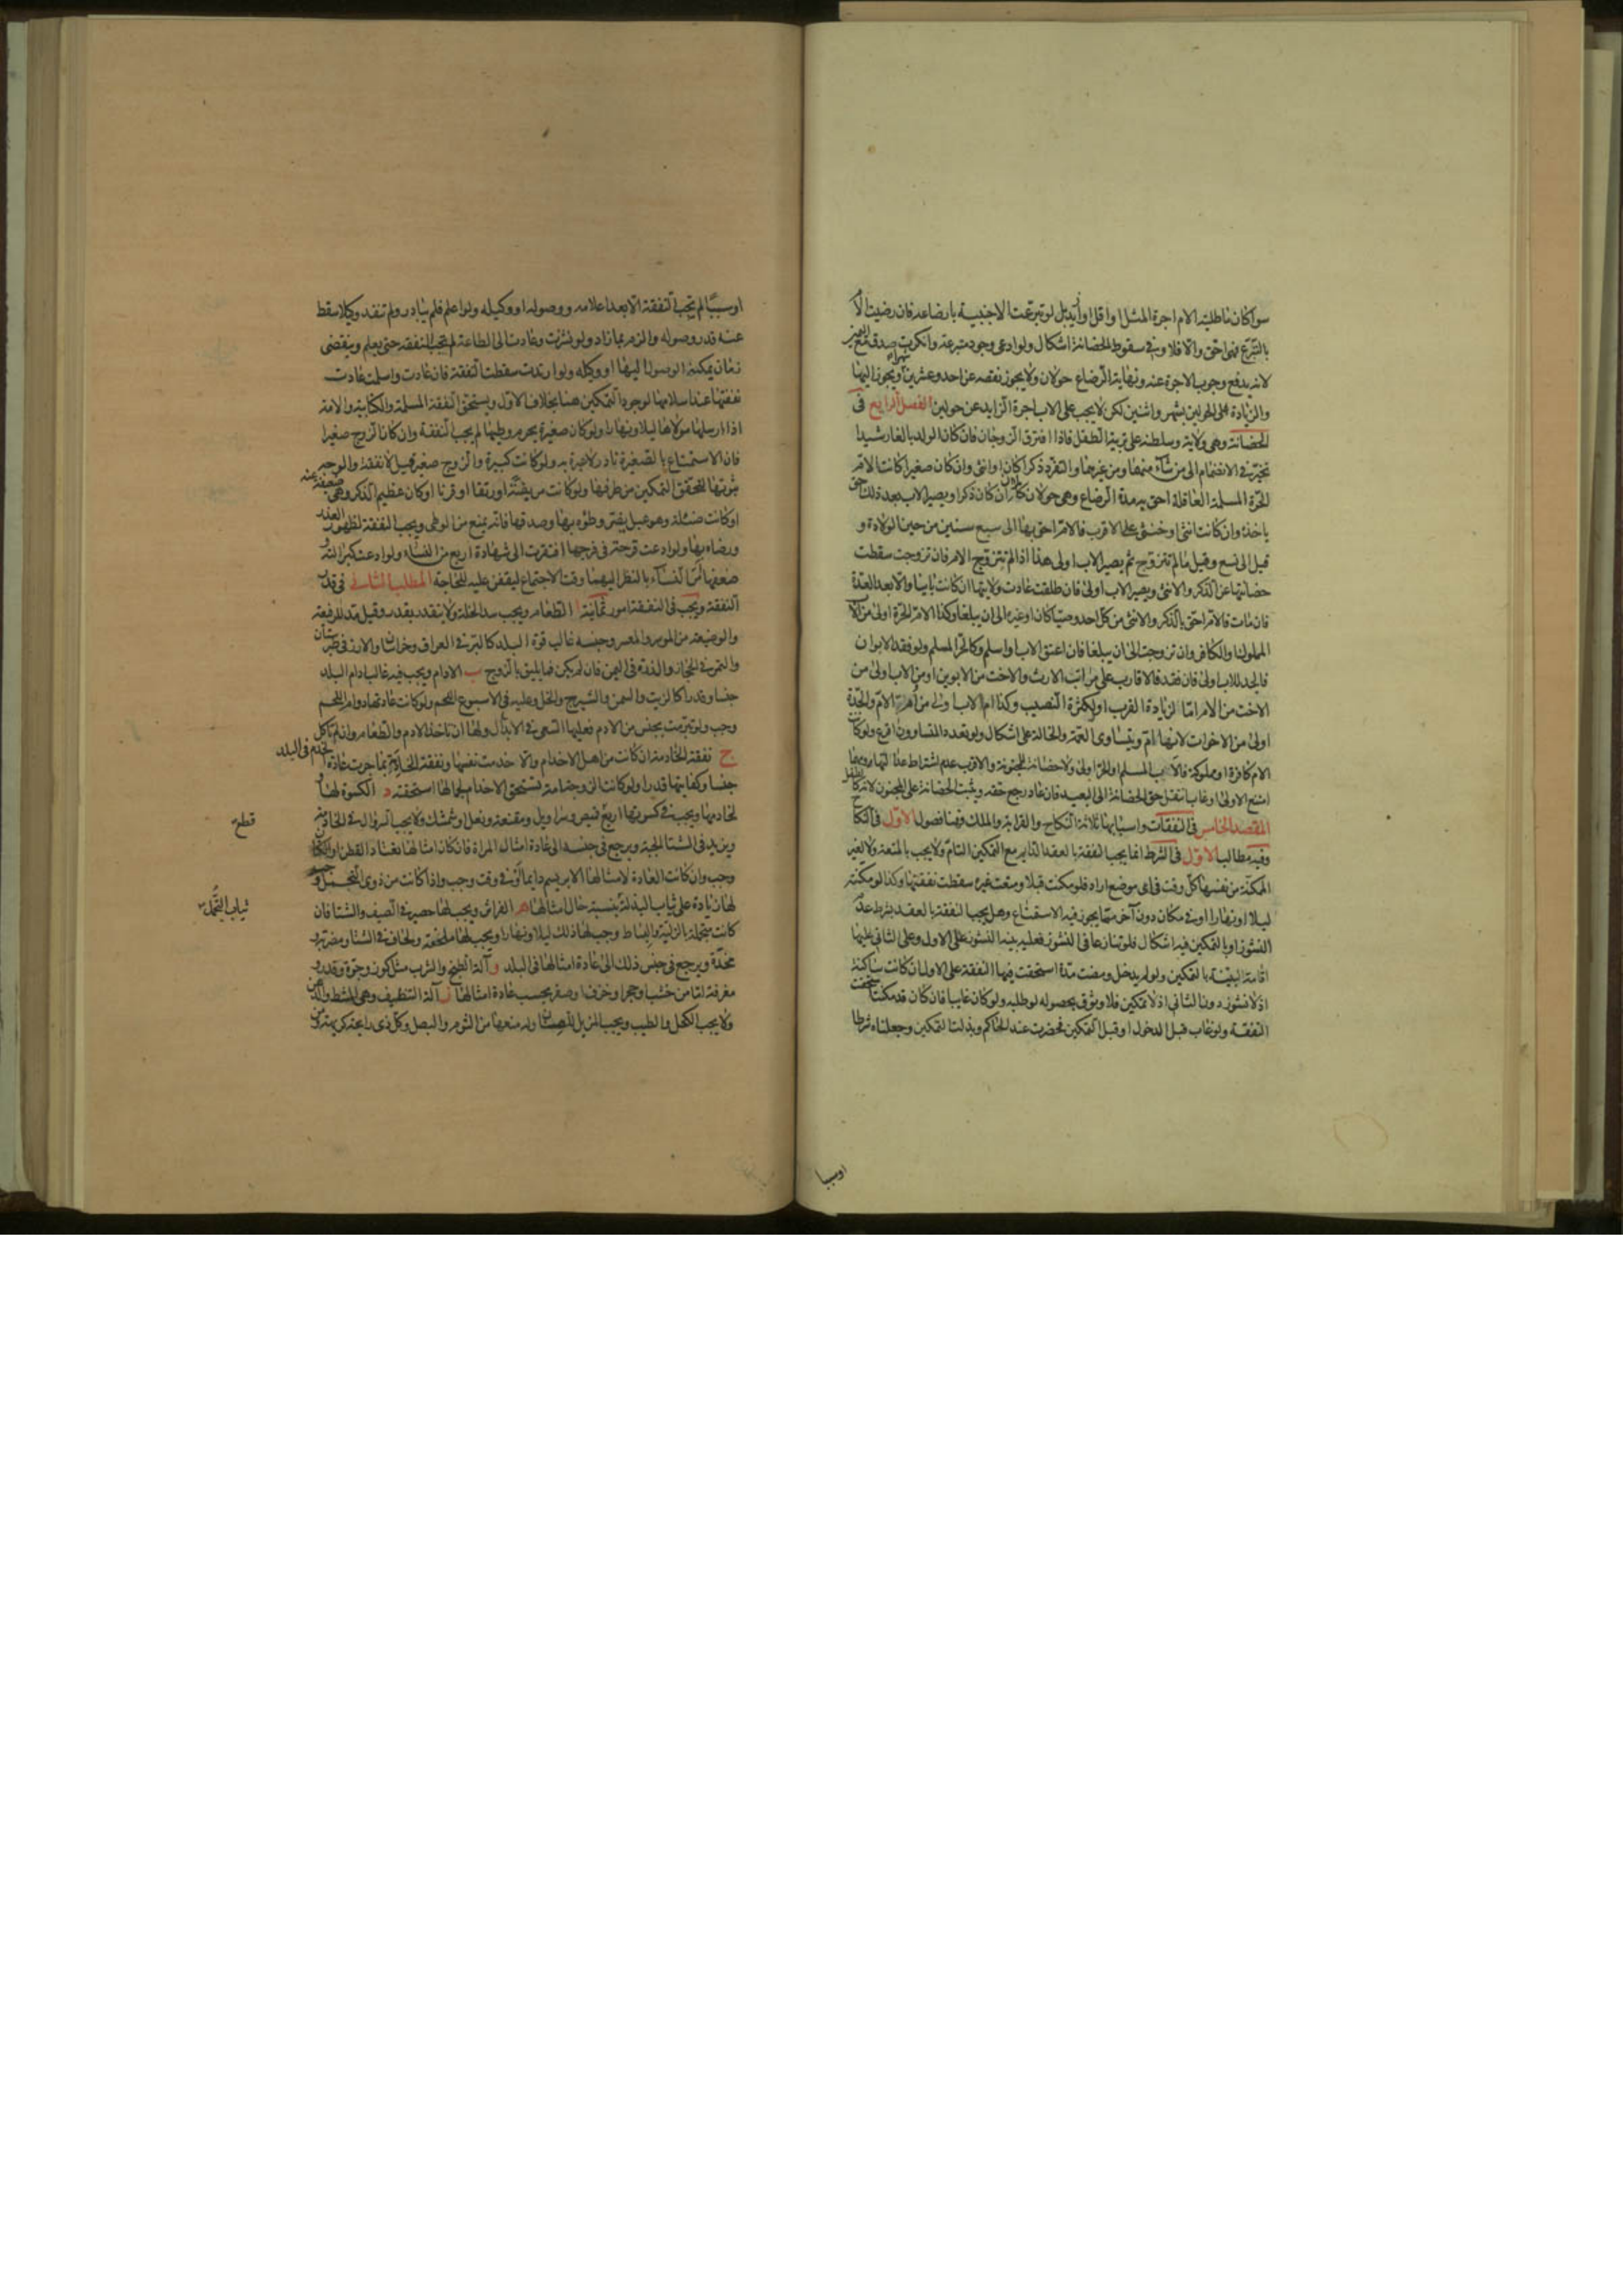 سواكان ماطلبته الام اجرة المثل او اقل او ازيد بل لو تبرعت الاجنبية بارضاعه فان رضيت الام
بالتبرع فهي احق والا فلا وفي سقوط الحضانة اشكال ولو ادعى وجود متبرعة وانكرت صدق مع اليمين
لانه يدفع وجوب الاجرة عنه ونهاية الرضاع حولان ولا يجوز نقصه عن احد وعشرين شهرا ويجوز اليها
والزيادة على الحولين بشهر واثنين لكن لا يجب على الاب اجرة الزايد عن حولين الفصل الرابع في
الحضانة وهي ولاية وسلطنة على تربية الطفل فاذا افترق الزوجان فان كان الولد بالغا رشيدا
تخير في الانضمام الى من شاء منهما ومن غيرهما والتفرد ذكرا كان او انثى وان كان صغيرا كانت الام
الحرة المسلمة العاقلة احق به مدة الرضاع وهي حولان كاملان ان كان ذكرا ويصير الاب بعد ذلك احق
باخذه وان كانت انثى او خنثى على الاقرب فالام احق بها الى سبع سنين من حين الولادة و
قيل الى تسع وقيل ما لم تتزوج ثم يصير الاب اولى هذا اذا لم تتزوج الام فان تزوجت سقطت
حضانتها عن الذكر والانثى ويصير الاب اولى فان طلقت عادت ولايتها ان كانت باينا والا بعد العدة
فان مات فالام احق بالذكر والانثى من كل احد وصيا كان او غيره الى ان يبلغا وكذا الام الحرة اولى من الاب
المملوك او الكافر وان تزوجت الى ان يبلغا فان اعتق الاب او اسلم فكالحر المسلم ولو فقد الابوان
فالجد للاب اولى فان فقد فالاقارب على مراتب الارث والاخت من الابوين او من الاب اولى من
الاخت من الام اما لزيادة القرب او لكثرة النصيب وكذا ام الاب اولى من ام الام والجدة
اولى من الاخوات لانها ام ويتساوى العمة والخالة على اشكال ولو تعدد المتساوون اقرع ولو كانت
الام كافرة او مملوكة فالاب المسلم او الحر اولى ولا حضانة للمجنونة والاقرب عدم اشتراط عدالتها
امتنع الاولى او غاب انتقل حق الحضانة الى البعيد فان عاد رجع حقه ويثبت الحضانة على المجنون لانه كالطفل
المقصد الخامس في النفقات واسبابها ثلاثة النكاح والقرابة والملك فهنا فصول الاول في النكاح
وفيه مطالب الاول في الشرط انما يجب النفقة بالعقد الدايم مع التمكين التام ولا يجب بالمتعة ولا لغير
الممكنة من نفسها كل وقت في اي موضع اراد فلو مكنت قبلا ومنعت غيره سقطت نفقتها وكذا لو مكنته
ليلا او نهارا او في مكان دون آخر مما يجوز فيه الاستمتاع وهل يجب النفقة بالعقد بشرط عدم
النشوز او بالتمكين فيه اشكال فلو تنازعا في النشوز فعليه بينة النشوز على الاول وعلى الثاني عليها
اقامة البينة بالتمكين ولو لم يدخل ومضت مدة استحقت فيها النفقة على الاول ان كانت ساكنة
اذ لا نشوز دون الثاني اذ لا تمكين فلا وثوق بحصوله لو طلبه ولو كان غايبا فان كان قد مكنت استحقت
النفقة ولو غاب قبل الدخول او قبل التمكين فحضرت عند الحاكم وبذلت التمكين وجعلناه شرطا
او سببا
او سببا لم تجب النفقة الا بعد اعلامه ووصوله او وكيله ولو اعلم فلم يبادر ولم تنفذ وكيلا سقط
عنه قدر وصوله والزم بما زاد ولو نشزت وعادت الى الطاعة لم تجب النفقة حتى يعلم وينقضي
زمان يمكنه الوصول اليها او وكيله ولو ارتدت سقطت النفقة فان غابت واسلمت عادت
نفقتها عند اسلامها لوجود التمكين هنا بخلاف الاول ويستحق النفقة المسلمة والكتابية والامة
اذا ارسلها مولاها ليلا ونهارا ولو كان صغيرة يحرم وطيها لم يجب النفقة وان كان الزوج صغيرا
فان الاستمتاع بالصغيرة نادر لا عبرة به ولو كانت كبيرة والزوج صغير قيل لا نفقة والوجه
ثبوتها لتحقق التمكين من طرفها ولو كانت مريضة او رتقا او قرنا او كان عظيم الذكر وهي ضعيفة عنه
او كانت ضئلة وهو عبل يضر وطؤه بها وصدقها فانه يمنع من الوطي ويجب النفقة لظهور العذر
ورضاه بها ولو ادعت قرحة في فرجها افتقرت الى شهادة اربع من النساء ولو ادعت كبر آلته و
ضعفها امر النساء بالنظر اليهما وقت الاجتماع ليقفن عليه للحاجة المطلب الثاني في قدر
النفقة ويجب في النفقة امور ثمانية ا الطعام ويجب سد الخلة ولا يتقدر بقدر وقيل مد للرفيعة
والوضيعة من الموسر والمعسر وجنسه غالب قوت البلد كالبر في العراق وخراسان والارز في طبرستان
والتمر في الحجاز والذرة في اليمن فان لم يكن فما يليق بالزوج ب الادام ويجب فيه غالب ادام البلد
جنسا وقدرا كالزيت والسمن والشيرج والخل وعليه في الاسبوع اللحم ولو كانت عادتها دوام اللحم
وجب ولو تبرمت بجنس من الادم فعليها السعي في الابدال ولها ان تاخذ الادم والطعام وان لم تاكل
ج نفقة الخادمة ان كانت من اهل الاخدام والا خدمت نفسها ونفقة الخادم بما جرت عادة الخدم في البلد
جنسا وكفايتها قدرا ولو كانت الزوجة امة تستحق الاخدام لجمالها استحقته د الكسوة لها و
لخادمها ويجب في كسوتها اربع قميص وسراويل ومقنعة ونعل او شمشك ولا يجب السروال في الخادمة
قطع
ويزيد في الشتا الجبة ويرجع في جنسه الى عادة امثال المراة فان كان امثالها تعتاد القطن او الكتان
وجب وان كانت العادة لامثالها الابريسم دايما او في وقت وجب واذا كانت من ذوي التجمل وجب
لها زيادة على ثياب البذلة بنسبة حال امثالها ه الفراش ويجب لها حصير في الصيف والشتا فان
ثياب التجمل
كانت متجملة بالزلية والبساط وجب لها ذلك ليلا ونهارا ويجب لها ملحفة ولحاف في الشتا ومضربة و
مخدة ويرجع في جنس ذلك الى عادة امثالها في البلد و آلة الطبخ والشرب مثل كوز وجرة وقدر و
مغرفة اما من خشب او حجر او خزف او صفر بحسب عادة امثالها ز آلة التنظيف وهي المشط والدهن
ولا يجب الكحل والطيب ويجب المزيل للصنان وله منعها من الثوم والبصل وكل ذي رايحة كريهة ومن